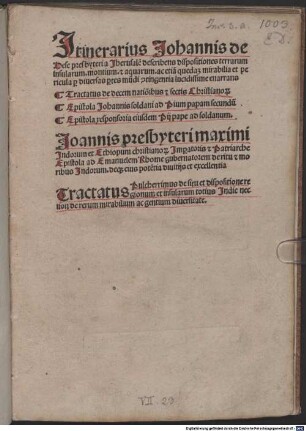 Inc. s. a. 1003
Itinerarius Johannis de
Hese presbyteri a Jherusalē describens dispositiones terrarum
insularum. montium. et aquarum. ac etiā quedaʒ mirabilia et pe
ricula ꝑ diuersas ptes mūdi ꝯtingentia lucidissime enarrans
Tractatus de decem natiōibus ⁊ sectis Christianoꝝ
Epistola Johannis soldani ad Pium papam secundū
Epistola responsoria eiusdem Pij pape ad soldanum
Joannis presbyteri maximi
Indorum et Ethiopum christianoꝝ Imꝑatoris et Patriarche
Epistola ad Emanuelem Rhome gubernatorem de ritu et mo
ribus Indorum. deqꝫ eius potētia diuitijs et excellentia
Tractatus
Pulcherrimus de situ et dispositione re
gionum et insularum totius Indie nec
non de rerum mirabilium ac gentium diuersitate.
VII. 23